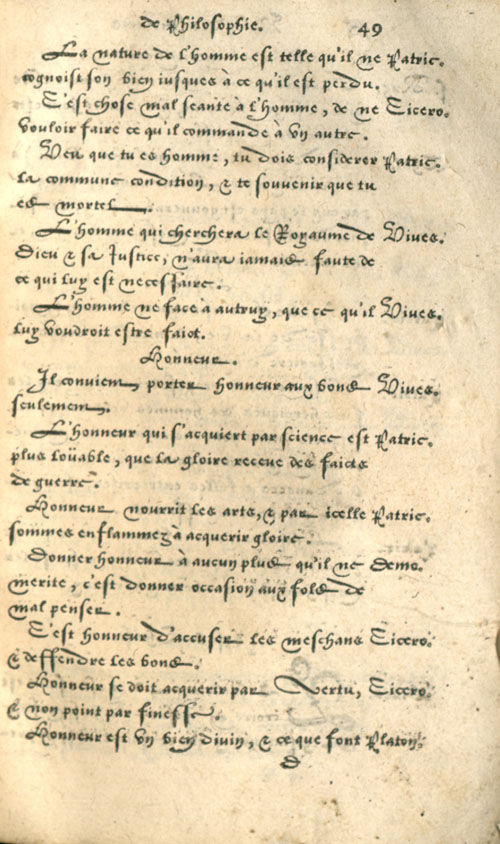 de Philosophie. 49
La nature de l'homme est telle qu'il ne Patric.
cognoist son bien iusques à ce qu'il est perdu.
C'est chose mal seante à l'homme, de ne Cicero.
vouloir faire ce qu'il commande à vn autre.
Veu que tu es homme, tu dois considerer Patric.
la commune condition, & te souvenir que tu
es mortel.
L'homme qui cherchera le Royaume de Vives.
Dieu & sa Justice, n'aura iamais faute de
ce qui luy est necessaire.
L'homme ne face à autruy, que ce qu'il Vives.
luy voudroit estre faict.
Honneur.
Il convient porter honneur aux bons Vives.
seulement.
L'honneur qui s'acquiert par science est Patric.
plus loüable, que la gloire receue des faicts
de guerre.
Honneur nourrit les arts, & par icelle Patric.
sommes enflammez à acquerir gloire.
Donner honneur à aucun plus qu'il ne Demo.
merite, c'est donner occasion aux fols de
mal penser.
C'est honneur d'accuser les meschans Cicero.
& deffendre les bons.
Honneur se doit acquerir par Vertu, Cicero.
& non point par finesse.
Honneur est vn bien divin, & ce que font Platon,
D